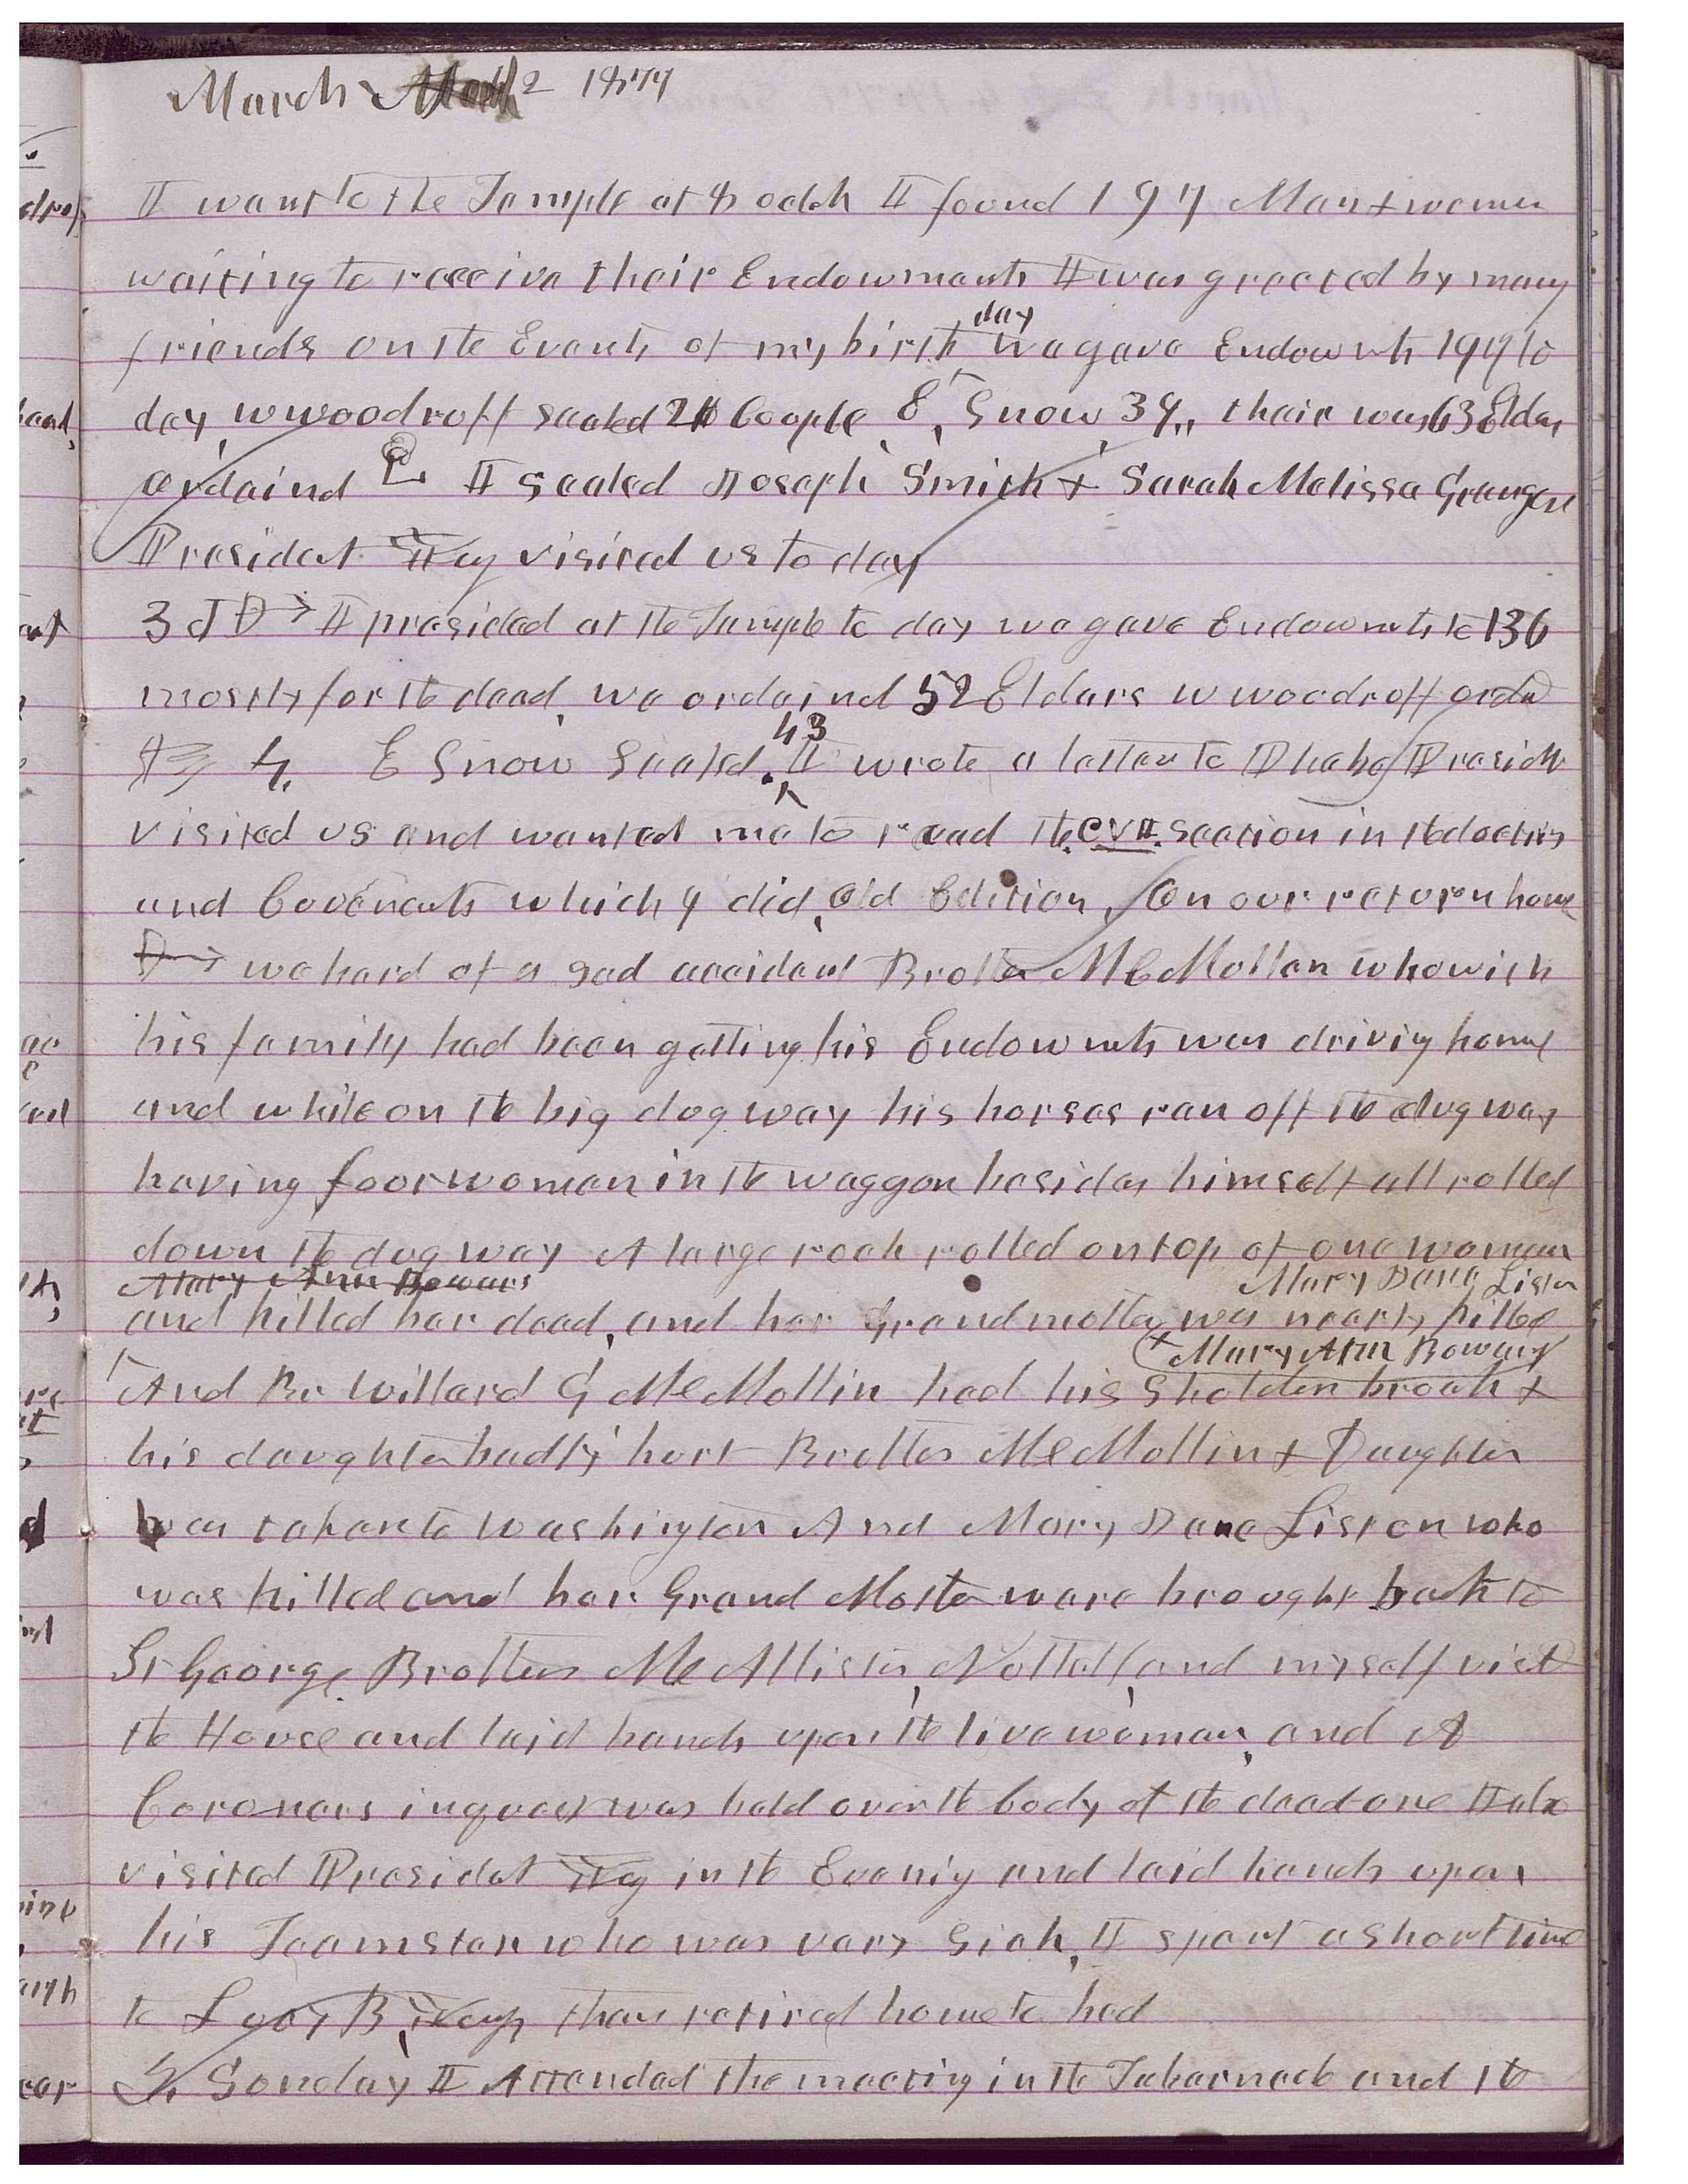 March 2 1877
I want to the Temple at 8 oclok I found 197 Man & women
waiting to receive their Endowments I was greeted by many
friends on the Events of my birth day We gave Endowmts 197 to
day, W Woodruff sealed 20 Couple, E, Snow 34,, thair was 63 Elders
ordaind I sealed Joseph Smith & Sarah Melissa Granger
President Young visited us to day
3d I presided at the Temple to day we gave Endowmts to 136
mostly for the dead, we ordaind 52 Elders W Woodruff
4, E Snow Sealed 43. I wrote a letter to Phebe Presidt
visited us and wanted me to read the CVII. section in the doctrin
and Covenants which I did, Old Edition, On our return home
we hard of a sad accident Brother McMollan who with
his family had been getting his Endowmts was driving home
and while on the big dug way his horses ran off the dug way
having foor woman in the waggon besides himself all rolled
down the dug way A large rock rolled on top of one woman
Mary Ann Bowers Mary Dane Liston
and killed her dead, and her Grandmother was nearly killed
Mary Ann Bowers
And Br Willard G McMollin had his Sholder broak &
his daughter badly hort Brother McMollin & Daughter
was taken to Washington And Mary Dane Liston who
was killed and her Grand Mother ware brought back to
St George. Brothers McAllister, Nottall, and myself visit
the House and laid hands upon the live woman, and A
Coroners inquest was held over the body of the dead one I also
visited Presidet Young in the Evenig and laid hands upon
his Teamster who was very Sick, I spent a short time
to Lucy B, Young than retired home to bed
4, Sonday I Attended the meeting in the Tabernacle and the